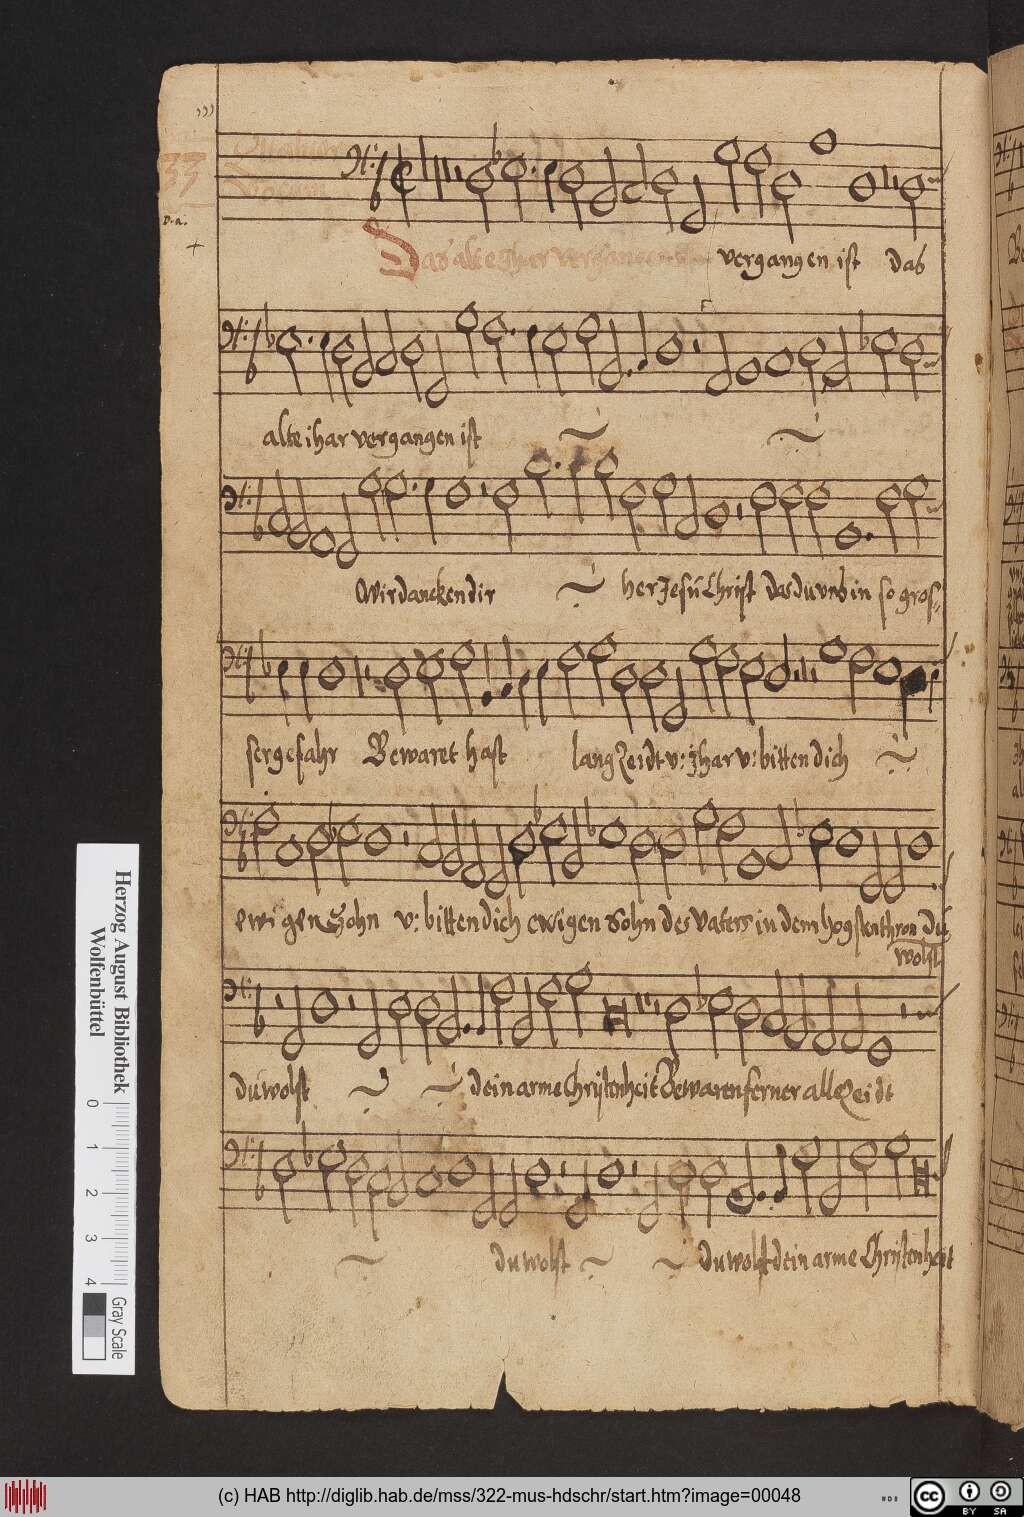 33
D. a.
Das alte Jhar vergangen ist vergangen ist das
alte ihar vergangen ist
Wir dancken dir her Jesu Christ das du vns in so gros=
ser gefahr Bewaret hast lang Zeidt v: Jhar v: bitten dich
ewigen Sohn v: bitten dich ewigen Sohn des Vaters in dem hogsten thron Du
wolst
du wolst dein arme Christenheit Bewaren ferner alle Zeidt
du wolst du wolst dein arme Christenheit
Herzog August Bibliothek
Wolfenbüttel
0 1 2 3 4
Gray Scale
(c) HAB http://diglib.hab.de/mss/322-mus-hdschr/start.htm?image=00048
cc BY SA